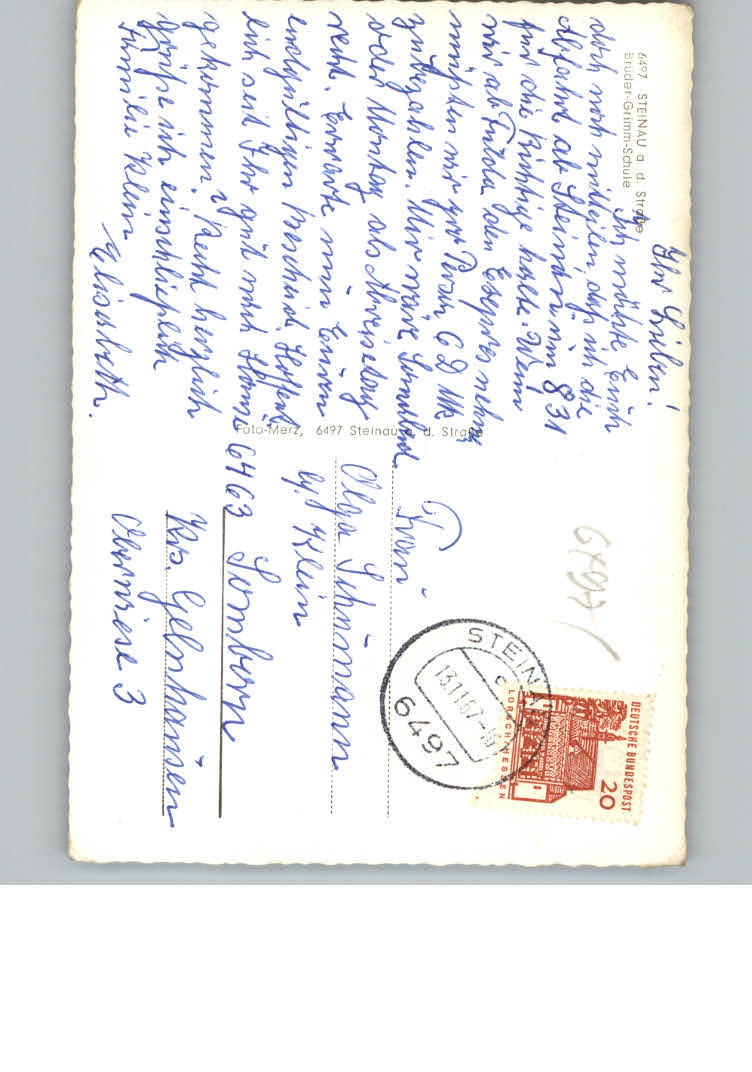 6497 STEINAU a. d. Straße
Brüder-Grimm-Schule
Ihr Lieben!
Ich möchte Euch
doch noch mitteilen, daß ich die
Abfahrt ab Steinau um 8 31
für die Richtige halte. Wenn
wir ab Fulda den Express nehmen
müßten wir pro Person 6 DM
zubezahlen. Mir wäre Sonnabend
oder Montag als Abreisetag
recht. Erwarte nun Euren
endgültigen Bescheid. Hoffentl.
eid seit Ihr gut nach Hause
gekommen? Recht herzlich
grüße ich einschließlich
Familie Klein
Elisabeth.
Foto-Merz, 6497 Steinau a. d. Straße
Frau
Olga Schümann
b/ Klein
6463 Somborn
Krs. Gelnhausen
Obernsee 3
6497
STEINAU
13.11.67-16
6497
DEUTSCHE BUNDESPOST
20
LORSCH/HESSEN